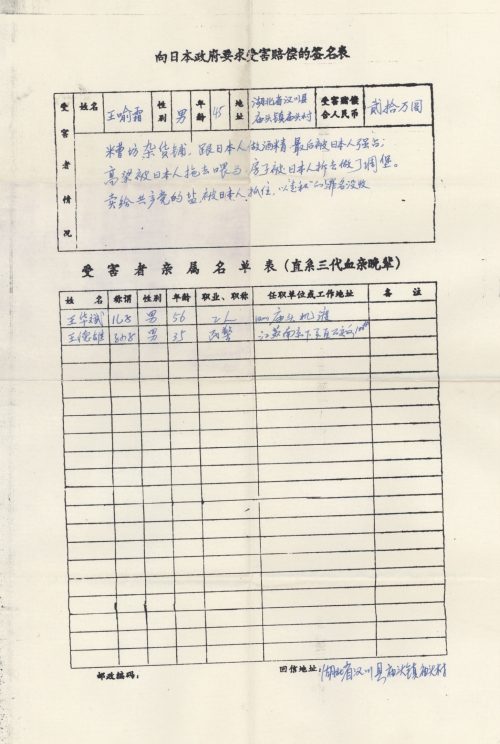 向日本政府要求受害赔偿的签名表
受害者情况 姓名 王喻霜 性别 男 年龄 45 地址 湖北省汉川县庙头镇庙头村 受害赔偿合人民币 贰拾万圆
糟坊杂货铺，跟日本人做酒精最后被日本人强占；
高粱被日本人拖去喂马，房子被日本人拆去做了碉堡。
卖给共产党的盐被日本人抓住，以 的罪名没收
受害者亲属名单表（直系三代血亲晚辈）
姓名 称谓 性别 年龄 职业、职称 任职单位或工作地址 备注
王华斌 男 56 工人 庙头机
王德雄 男 35 民警 江苏南京
邮政编码： 回信地址：湖北省汉川县庙头镇庙头村